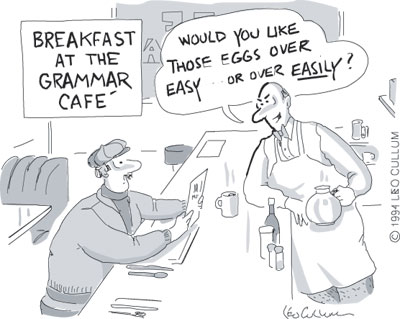 BREAKFAST
AT THE
GRAMMAR
CAFÉ
WOULD YOU LIKE
THOSE EGGS OVER
EASY...OR OVER EASILY?
© 1994 LEO CULLUM
LEO CULLUM